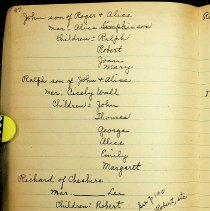 John son of Roger & Alice
Mar. Alice Simpkinson
Children: Ralph
Robert
Joan
Mary
Ralph son of John & Alice
Mar. Cicely Wall
Children: John
Thomas
George
Alice
Emily
Margaret
Richard of Cheshire
Mar. Lee
Children: Robert
See p. 100
Robert